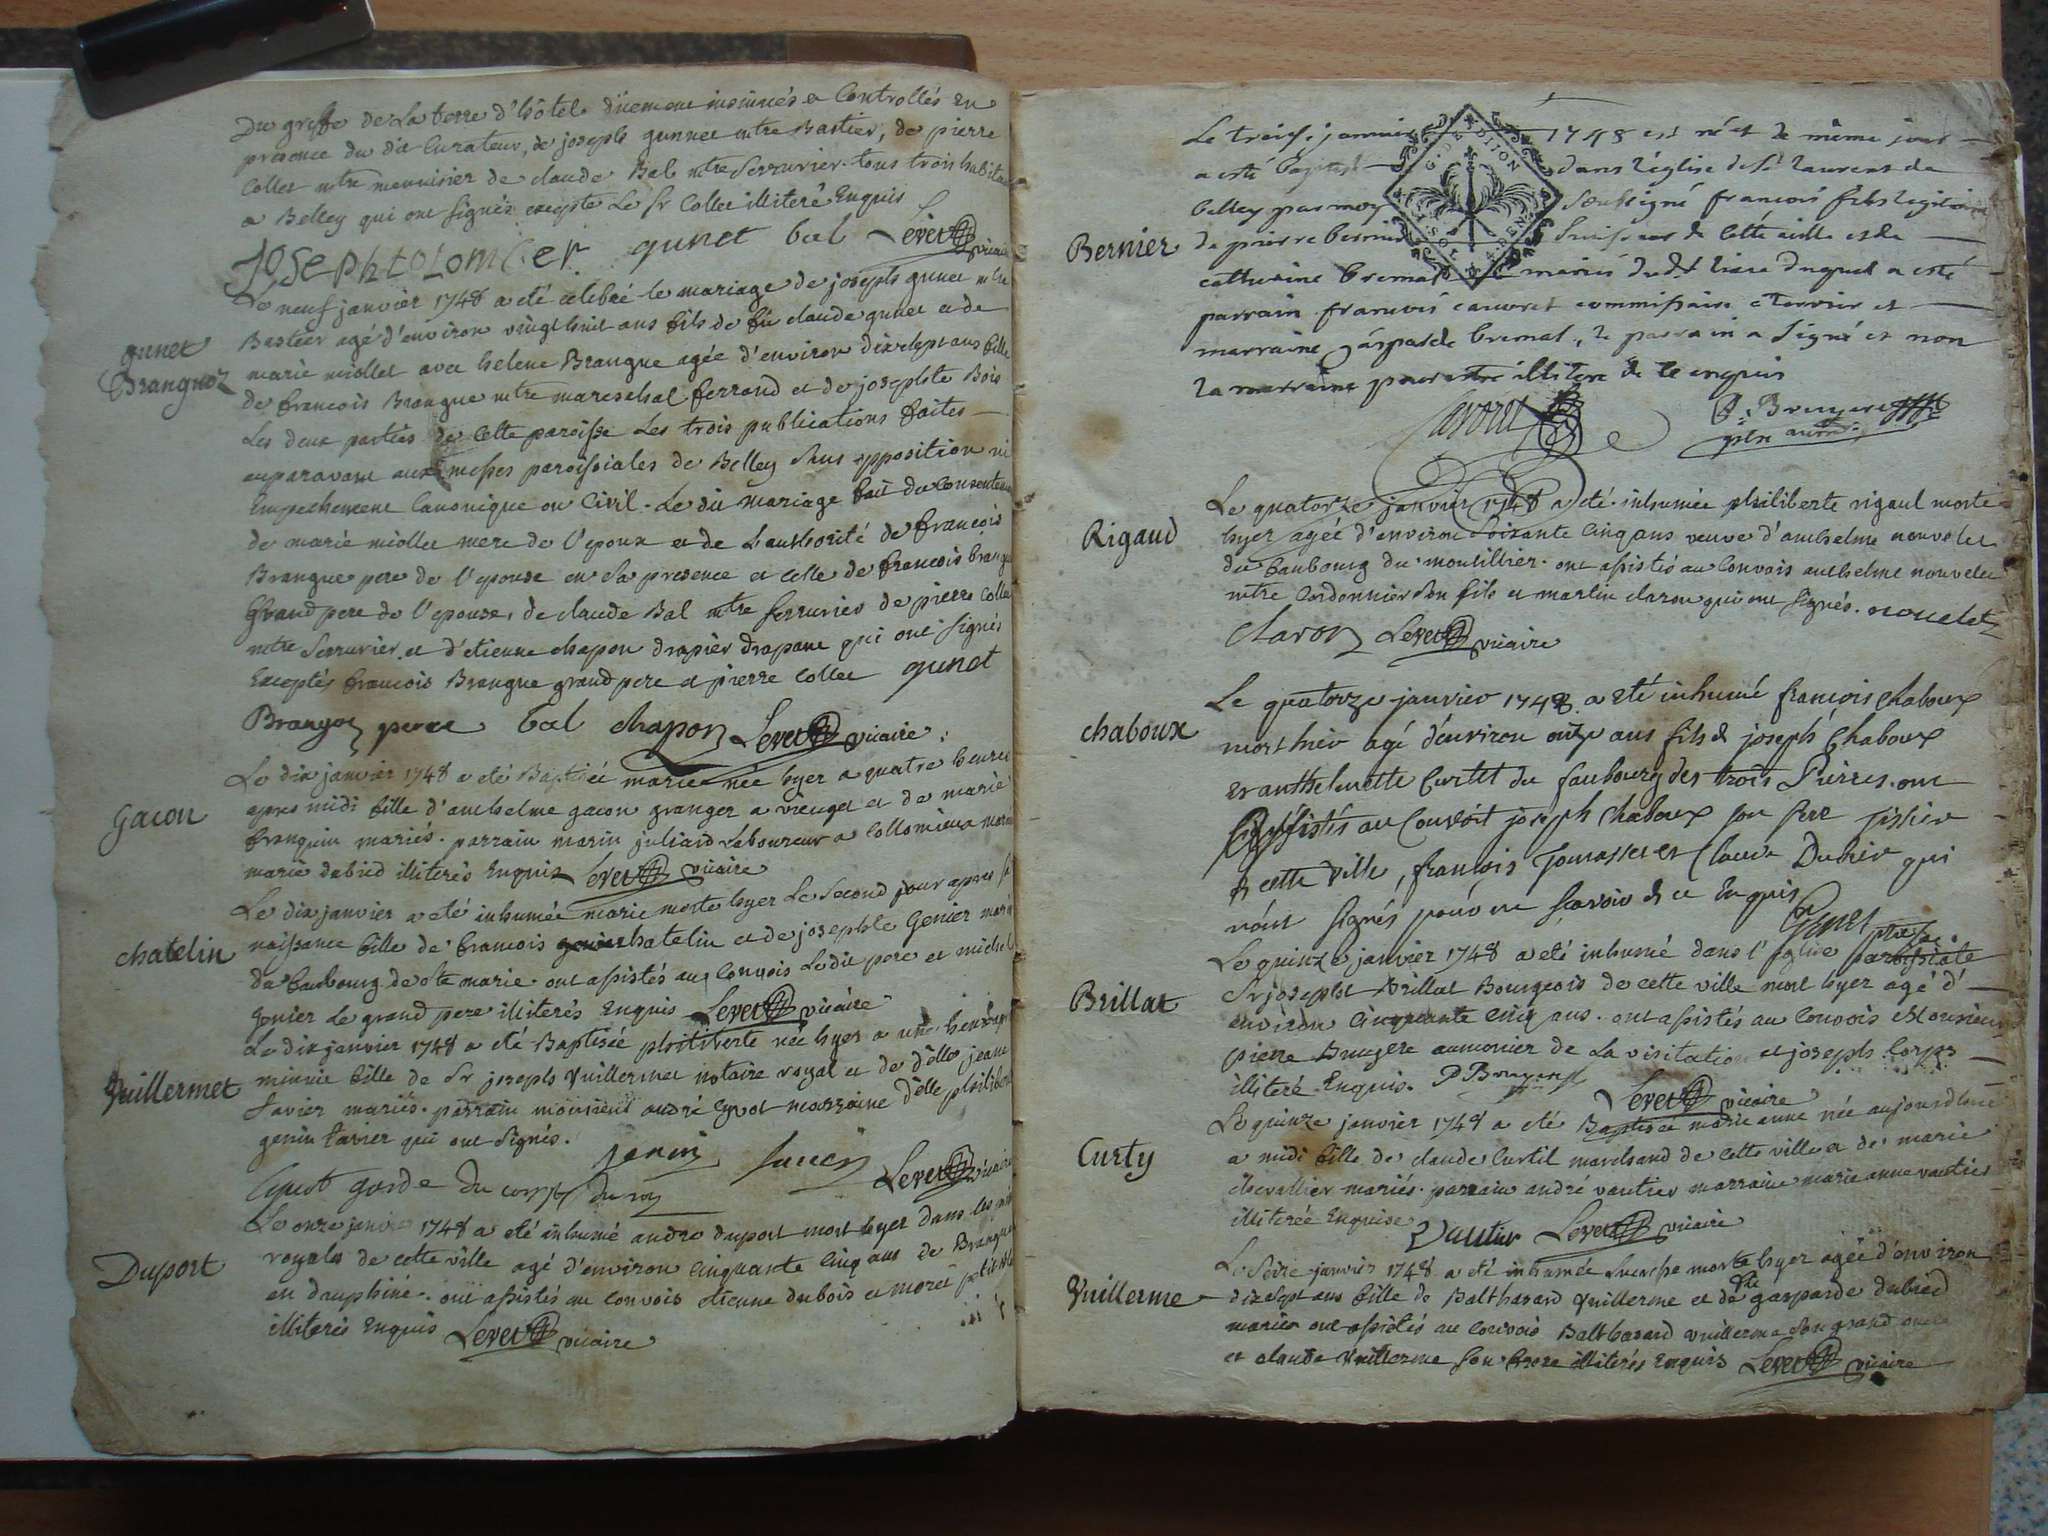 Du greffe de La terre d'hôtel düement insinués et Controllés En
presence du dit Curateur, de joseph gunnet mtre Bastier, de pierre
Collet mtre menuisier de claude Bal mtre Serrurier tous trois habitan
a Belley qui ont signés excepté Le Sr Collet illiteré Enquis
Joseph tolombert gunet bal Levet vicaire
Le neuf janvier 1748 a eté celebré le mariage de joseph gunet mtre
gunet
Brangnoz
Bastier agé d'environ vingt huit ans fils de feu claude gunet et de
marie miollet avec helene Brangue agée d'environ dixsept ans fille
de francois Brangue mtre mareschal ferrand et de josephte Bois
Les deux parties de cette paroisse Les trois publications faites
auparavant aux messes paroissiales de Belley sans opposition ni
Empechement Canonique ou Civil. Le dit mariage fait du consentem
de marie miollet mere de l'epoux et de L'authorité de francois
Brangue pere de l'epouse en sa presence et celle de francois brangue
Grand pere de l'epouse, de claude Bal mtre serrurier de pierre Collet
mtre Serrurier et d'etienne chapon drapier drapant qui ont signés
Exceptés francois Brangue grand pere et pierre Collet gunet
Brangoz perre bal chapon Levet vicaire
Le dix janvier 1748 a eté Baptisée marie née hyer a quatre heures
gacon
apres midi fille d'anthelme gacon granger a vieuget et de marie
franquin mariés. parrain marin juliard Laboureur a Collomieux
marie dubied illiterés Enquis Levet vicaire
Le dix janvier a eté inhumée marie morte hyer Le Second jour apres sa
chatelin
naissance fille de francois chatelin et de josephte Genier mariés
du faubourg de Ste marie ont assistés au Convois Ledit pere et michel
genier Le grand pere illiterés Enquis Levet vicaire
Le dix janvier 1748 a eté Baptisée philiberte née hyer a une heure
Vuillermet
minuit fille de Sr joseph Vuillermet notaire royal et de d'elle jeanne
tavier mariés. parrain monsieur andré marraine d'elle philiberte
genin tavier qui ont signés.
genin
garde du corps du roy Levet vicaire
Le onze janvier 1748 a eté inhumé andré duport mort hyer dans les
Duport
royales de cette ville agé d'environ cinquante Cinq ans de Brangue
en dauphiné. ont assistés au convois etienne dubois et morel
illiterés Enquis Levet vicaire
Le treize janvier 1748 est né et le même jour
a esté baptisé dans l'église de St laurent de
belley par moy soussigné françois fils legitime
Bernier
de pierre bernier suisse de cette ville et de
catherine bremat mariés dudt lieu duquel a esté
parrain francois cauoret commissaire a terrier et
marraine gasparde bremat, le parrain a signé et non
la marraine pour être illitere de ce enquis
Cavoret P. Bruyere
G. DE DIJON
Le quatorze janvier 1748 a eté inhumée philiberte rigaul morte
Rigaud
hyer agée d'environ soixante Cinq ans veuve d'anthelme nouvelet
du faubourg du montillier. ont assistés au Convois anthelme nouvelet
mtre Cordonnier son fils et martin claron qui ont signés. nouelet
claron Levet vicaire
Le quatorze janvier 1748 a eté inhumé françois Chaboux
chaboux
mort hier agé d'environ onze ans fils de joseph Chaboux
et anthelmette Curtet du faubourg des trois Pierres. ont
assistés au Convoit joseph Chaboux son pere
de cette ville, françois Jomasset et Claude Dubier qui
n'ont signés pour ne sçavoir de ce Enquis
Le quinze janvier 1748 a eté inhumé dans l'Eglise paroissiale
Brillat
Sr joseph Brillat Bourgeois de cette ville mort hyer agé d'
environ Cinquante cinq ans. ont assistés au Convois Monsieur
pierre Bruyere aumonier de La visitation et joseph Corps
illiteré Enquis. P Bruyere Levet vicaire
Le quinze janvier 1748 a eté Baptisée marie anne née aujourdhuy
Curty
a midi fille de claude Curtil marchand de cette ville et de marie
chevallier mariés. parrain andré vautier marraine marie anne vautier
illiterée Enquise Vautier Levet vicaire
Le Seize janvier 1748 a eté inhumée morte hyer agée d'environ
Vuillerme
dixsept ans fille de Balthazard Vuillerme et de gasparde dubied
mariés ont assistés au Convois Balthazard vuillerme son grand oncle
et claude Vuillerme son frere illiterés Enquis Levet vicaire